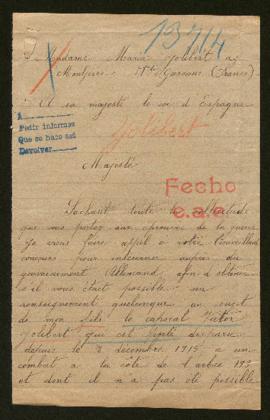 13714
Madame Maria Jolibert à
Monferran Hte Garonne (France)
A sa majesté le roi d'Espagne
A
Pedir informes
Que se haga así
Devolver
Jolibert
Majesté
Fecho
e.a.e.
Sachant toute la
que vous portez aux éprouvés de la guerre
Je viens faire appel à votre bienveillant
concours pour intervenir auprès du
gouvernement Allemand afin d'obtenir
s'il vous était possible un
renseignement quelconque au sujet
de mon fils le caporal Victor
Jolibert qui est porté disparu
depuis le 2 décembre 1915 a un
combat à la côte de l'arbre 193
et dont il n'a pas été possible